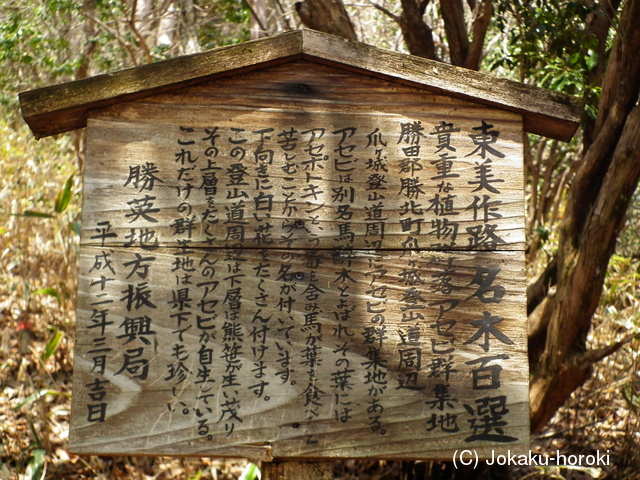 東美作路名木百選
貴重な植物群落アセビ群集地
勝田郡勝北町爪ヶ城登山道周辺
爪ヶ城登山道周辺にアセビの群集地がある。
アセビは別名馬酔木とよばれ、その葉には
アセボトキシンという毒を含み馬が葉を食べて
苦しむことからその名が付いています。
下向きに白い花をたくさん付けます。
この登山道周辺は下層は熊笹が生い茂り
その上層をたくさんのアセビが自生している。
これだけの群生地は県下でも珍しい。
勝英地方振興局
平成十二年三月吉日
(C) Jokaku-horoki